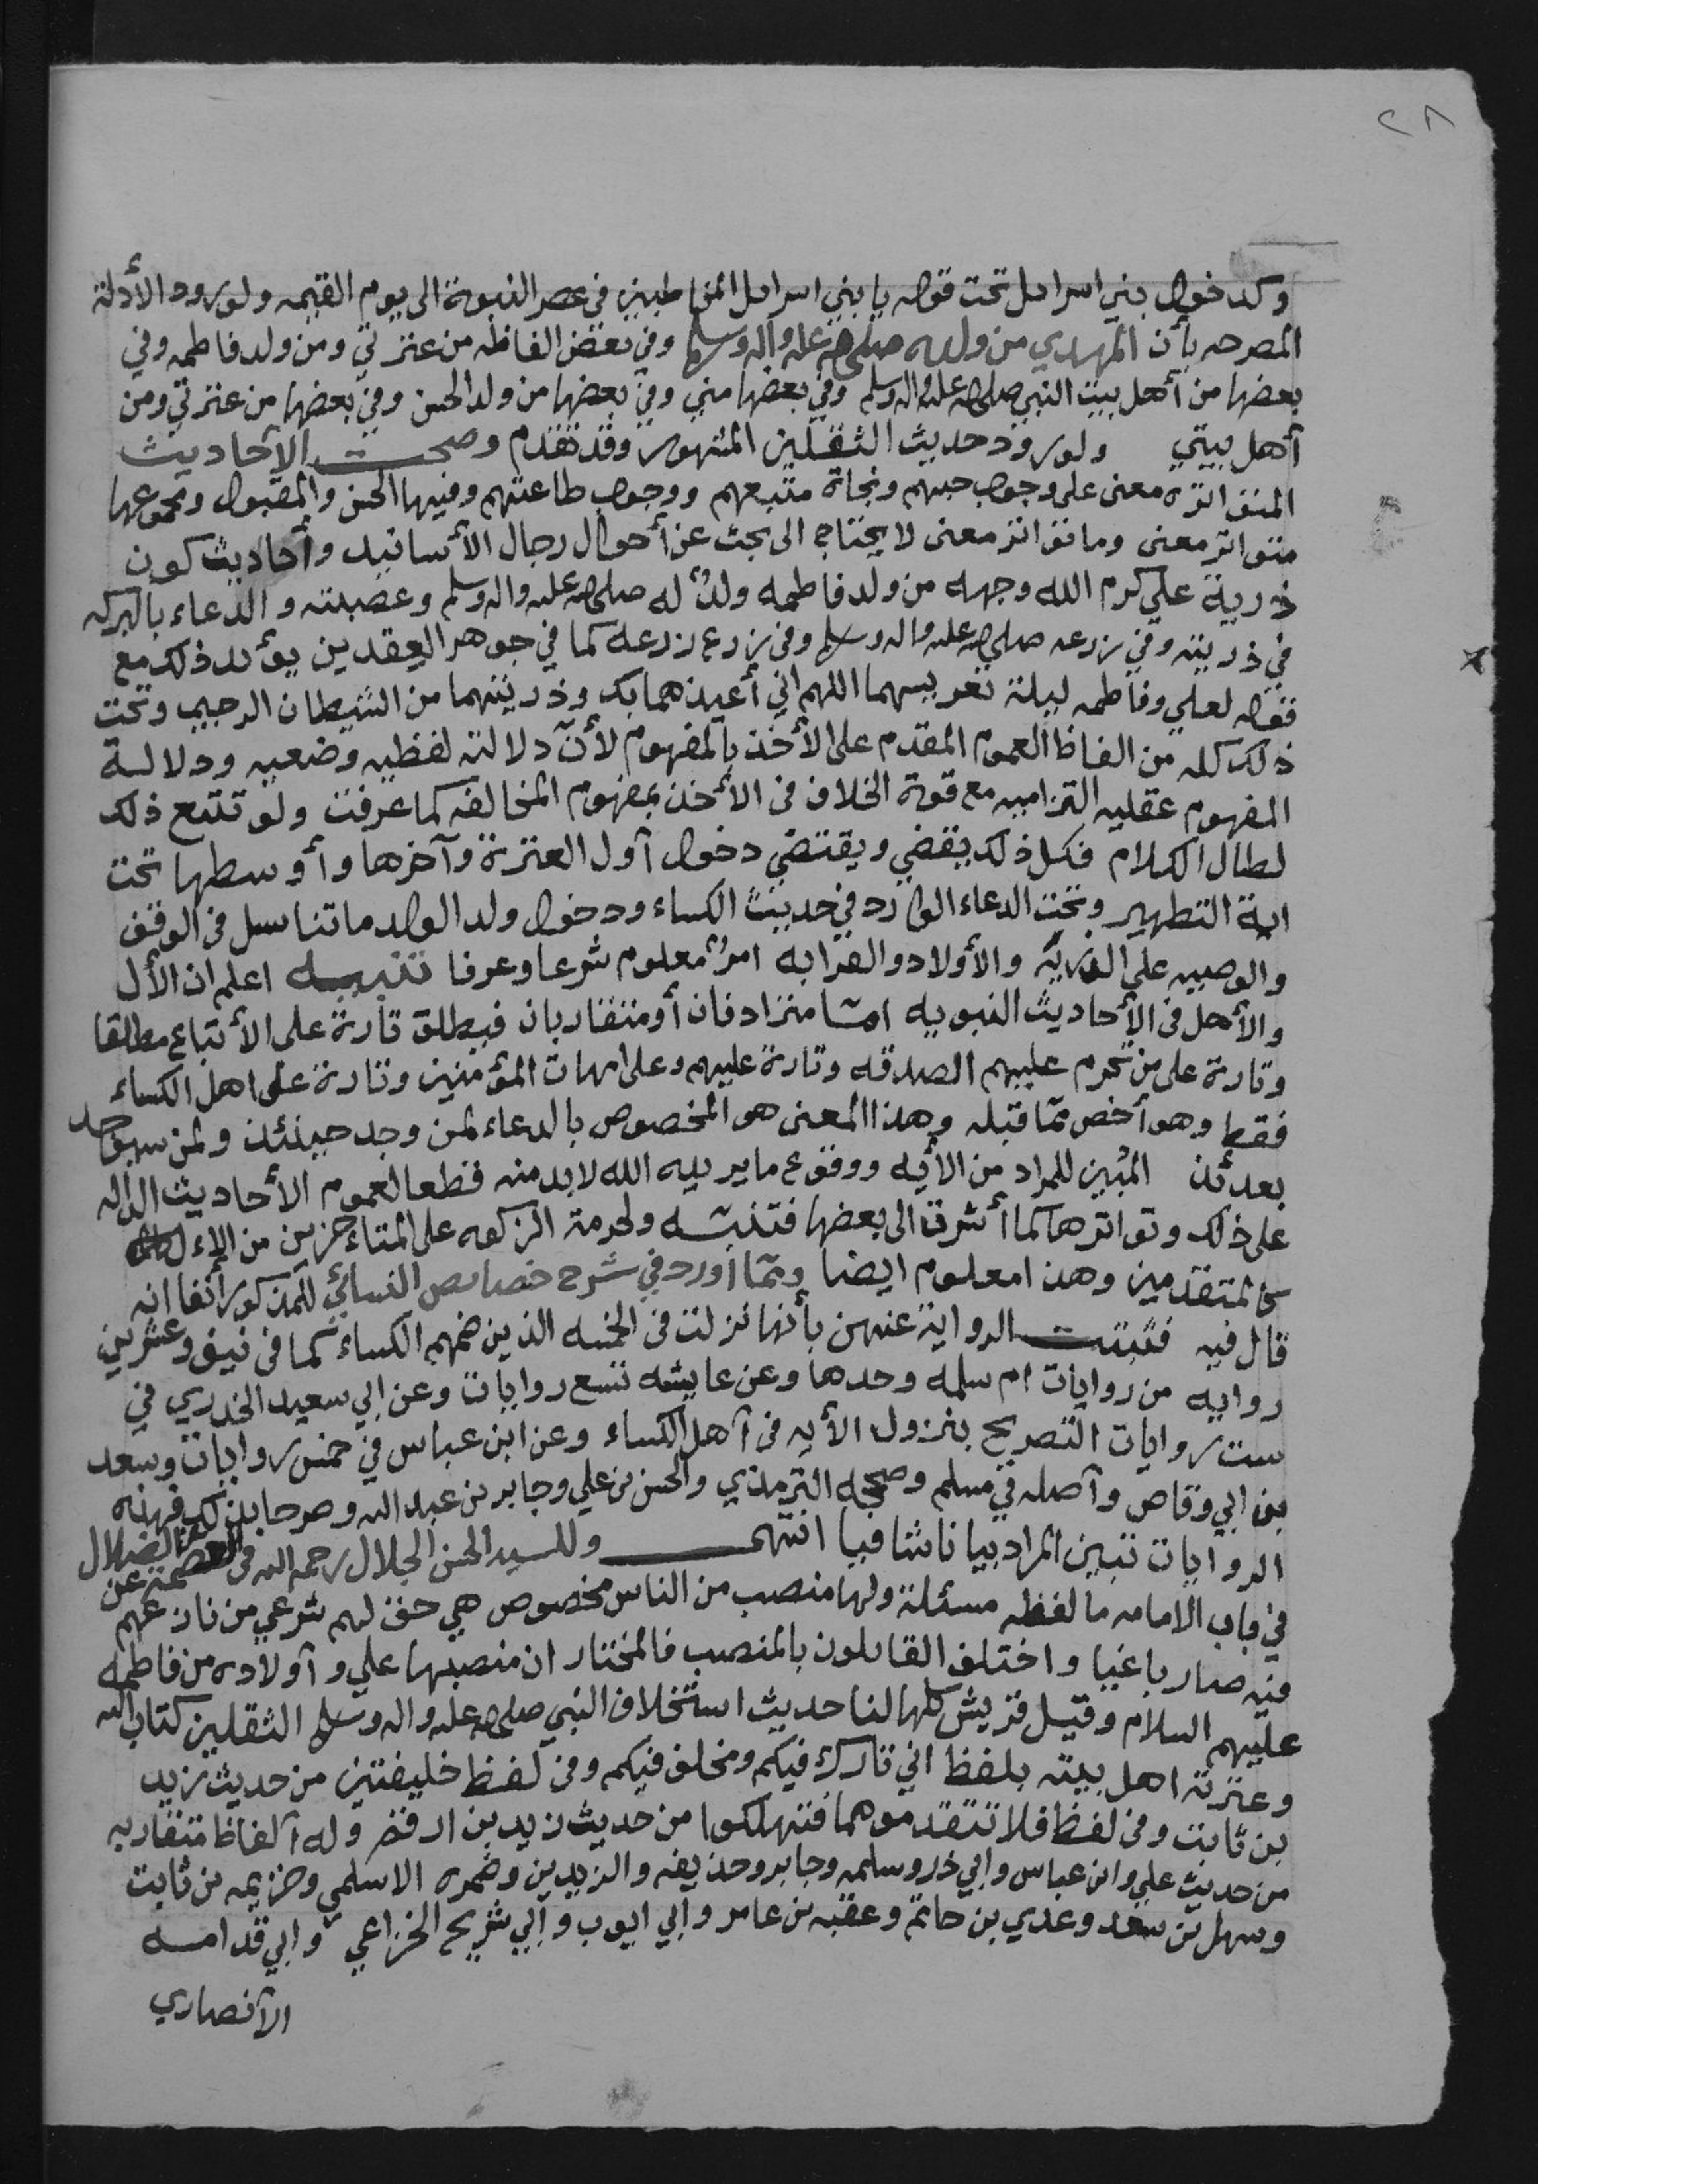 ٢٨
وكدخول بني اسرايل تحت قوله يا بني اسرايل المخاطبين في عصر النبوة الى يوم القيمه ولورود الأدلة
المصرحه بأن المهدي من ولده صلى الله عليه وآله وسلم وفي بعض الفاظه من عترتي ومن ولد فاطمه وفي
بعضها من أهل بيت النبي صلى الله عليه واله وسلم وفي بعضها مني وفي بعضها من ولد الحسن وفي بعضها من عترتي ومن
أهل بيتي ولورود حديث الثقلين المشهور وقد تقدم وصحت الأحاديث
المتواتره معنى على وجوب حبهم ونجاة متبعهم ووجوب طاعتهم وفيها الحسن والمقبول ومجموعها
متواتر معنى وما تواتر معنى لا يحتاج الى بحث عن أحوال رجال الأسانيد وأحاديث كون
ذرية علي كرم الله وجهه من ولد فاطمه ولدٌ له صلى الله عليه واله وسلم وعصبته والدعاء بالبركه
في ذريته وفي زرعه صلى الله عليه واله وسلم وفي زرع زرعه كما في جوهر العقدين يؤيد ذلك مع
قوله لعلي وفاطمه ليلة تعريسهما اللهم اني أعيذهما بك وذريتهما من الشيطان الرجيم وتحت
ذلك كله من الفاظ العموم المقدم على الأخذ بالمفهوم لأن دلالته لفظيه وضعيه ودلالة
المفهوم عقليه التزاميه مع قوة الخلاف في الأخذ بمفهوم المخالفه كما عرفت ولو تتبع ذلك
لطال الكلام فكل ذلك يقضي ويقتضي دخول أول العترة وآخرها وأوسطها تحت
اية التطهير وتحت الدعاء الوارد في حديث الكساء ودخول ولد الولد ما تناسل في الوقف
والوصيه على الذريه والأولاد والقرابه امرٌ معلوم شرعا وعرفا تنبيه اعلم ان الأل
والأهل في الأحاديث النبويه امّا مترادفان أو متقاربان فيطلق تارة على الأتباع مطلقا
وتارة على من تحرم عليهم الصدقه وتارة عليهم وعلى امهات المؤمنين وتارة على اهل الكساء
فقط وهو أخص مما قبله وهذا المعنى هو المخصوص بالدعاء لمن وجد حينئذ ولمن سيوجد
بعدئذ المبين للمراد من الأيه ووقوع ما يريده الله لا بد منه قطعا لعموم الأحاديث الداله
على ذلك وتواترها كما أشرت الى بعضها فتنبه ولحرمة الزكوه على المتأخرين من الأل
كالمتقدمين وهذا معلوم ايضا ومما أورد في شرح خصايص النسائي المذكور أنفا انه
قال فيه فثبتت الرواية عنهن بأنها نزلت في الخمسه الذين ضمهم الكساء كما في نيف وعشرين
روايه من روايات ام سلمه وحدها وعن عايشه تسع روايات وعن ابي سعيد الخدري في
ست روايات التصريح بنزول الأيه في أهل الكساء وعن ابن عباس في خمس روايات وسعد
بن ابي وقاص وأصله في مسلم وصححه الترمذي والحسن بن علي وجابر بن عبد الله وصرحا بذلك فهذه
الروايات تبين المراد بيانا شافيا انتهى وللسيد الحسن الجلال رحمه الله في العصمة عن الضلال
في باب الامامه ما لفظه مسئلة ولها منصب من الناس مخصوص هي حق لهم شرعي من نازعهم
فيه صار باغيا واختلف القايلون بالمنصب فالمختار ان منصبها علي وأولاده من فاطمه
عليهم السلام وقيل قريش كلها لنا حديث استخلاف النبي صلى الله عليه واله وسلم الثقلين كتاب الله
وعترته اهل بيته بلفظ اني تارك فيكم ومخلف فيكم وفي لفظ خليفتين من حديث زيد
بن ثابت وفي لفظ فلا تتقدموهما فتهلكوا من حديث زيد بن ارقم وله ألفاظ متقاربه
من حديث علي وابن عباس وابي ذر وسلمه وجابر وحذيفه والزيدين وضمره الاسلمي وخزيمه بن ثابت
وسهل بن سعد وعدي بن حاتم وعقبه بن عامر وابي ايوب وابي شريح الخزاعي وابي قدامه
الأنصاري